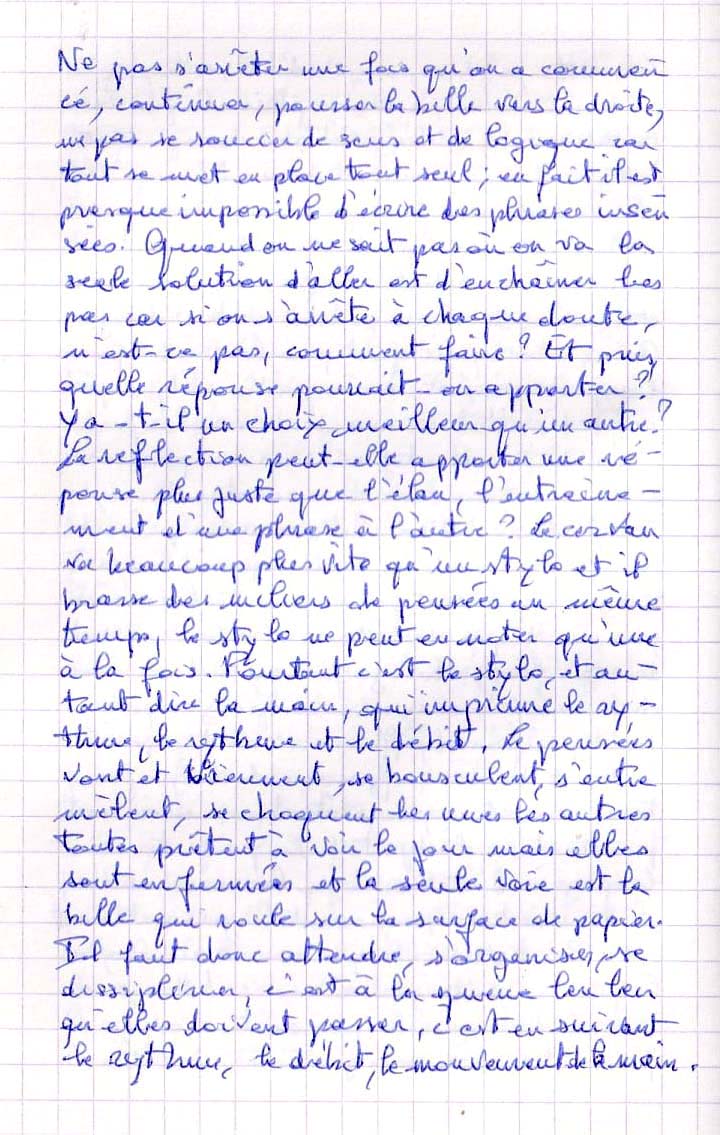 Ne pas s'arrêter une fois qu'on a commen
cé, continuer, pousser la bille vers la droite,
ne pas se soucier de sens et de logique car
tout se met en place tout seul ; en fait il est
presque impossible d'écrire des phrases insen
sées. Quand on ne sait pas où on va la
seule solution d'aller est d'enchaîner les
pas car si on s'arrête à chaque doute,
n'est-ce pas, comment faire ? Et puis,
quelle réponse pourrait-on apporter ?
Y a-t-il un choix meilleur qu'un autre ?
La reflection peut-elle apporter une ré-
ponse plus juste que l'élan, l'entraîne-
ment d'une phrase à l'autre ? Le cerveau
va beaucoup plus vite qu'un stylo et il
brasse des milliers de pensées en même
temps, le stylo ne peut en noter qu'une
à la fois. Pourtant c'est le stylo, et au-
tant dire la main, qui imprime le ry-
thme, le rythme et le débit. Le pensées
vont et viennent, se bousculent, s'entre
mêlent, se choquent les unes les autres
toutes prêtent à voir le jour mais elles
sont enfermées et la seule voie est la
bille qui roule sur la surface de papier.
Il faut donc attendre, s'organiser, se
dissipliner, c'est à la queue leu leu
qu'elles doivent passer, c'est en suivant
le rythme, le débit, le mouvement de la main.